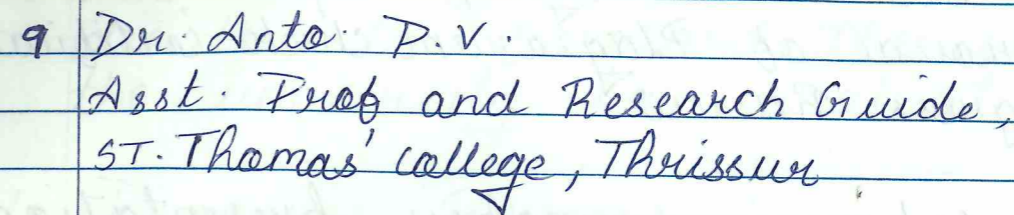 9 Dr. Anto. P.V.
Asst. Prof and Research Guide,
ST. Thomas' college, Thrissur